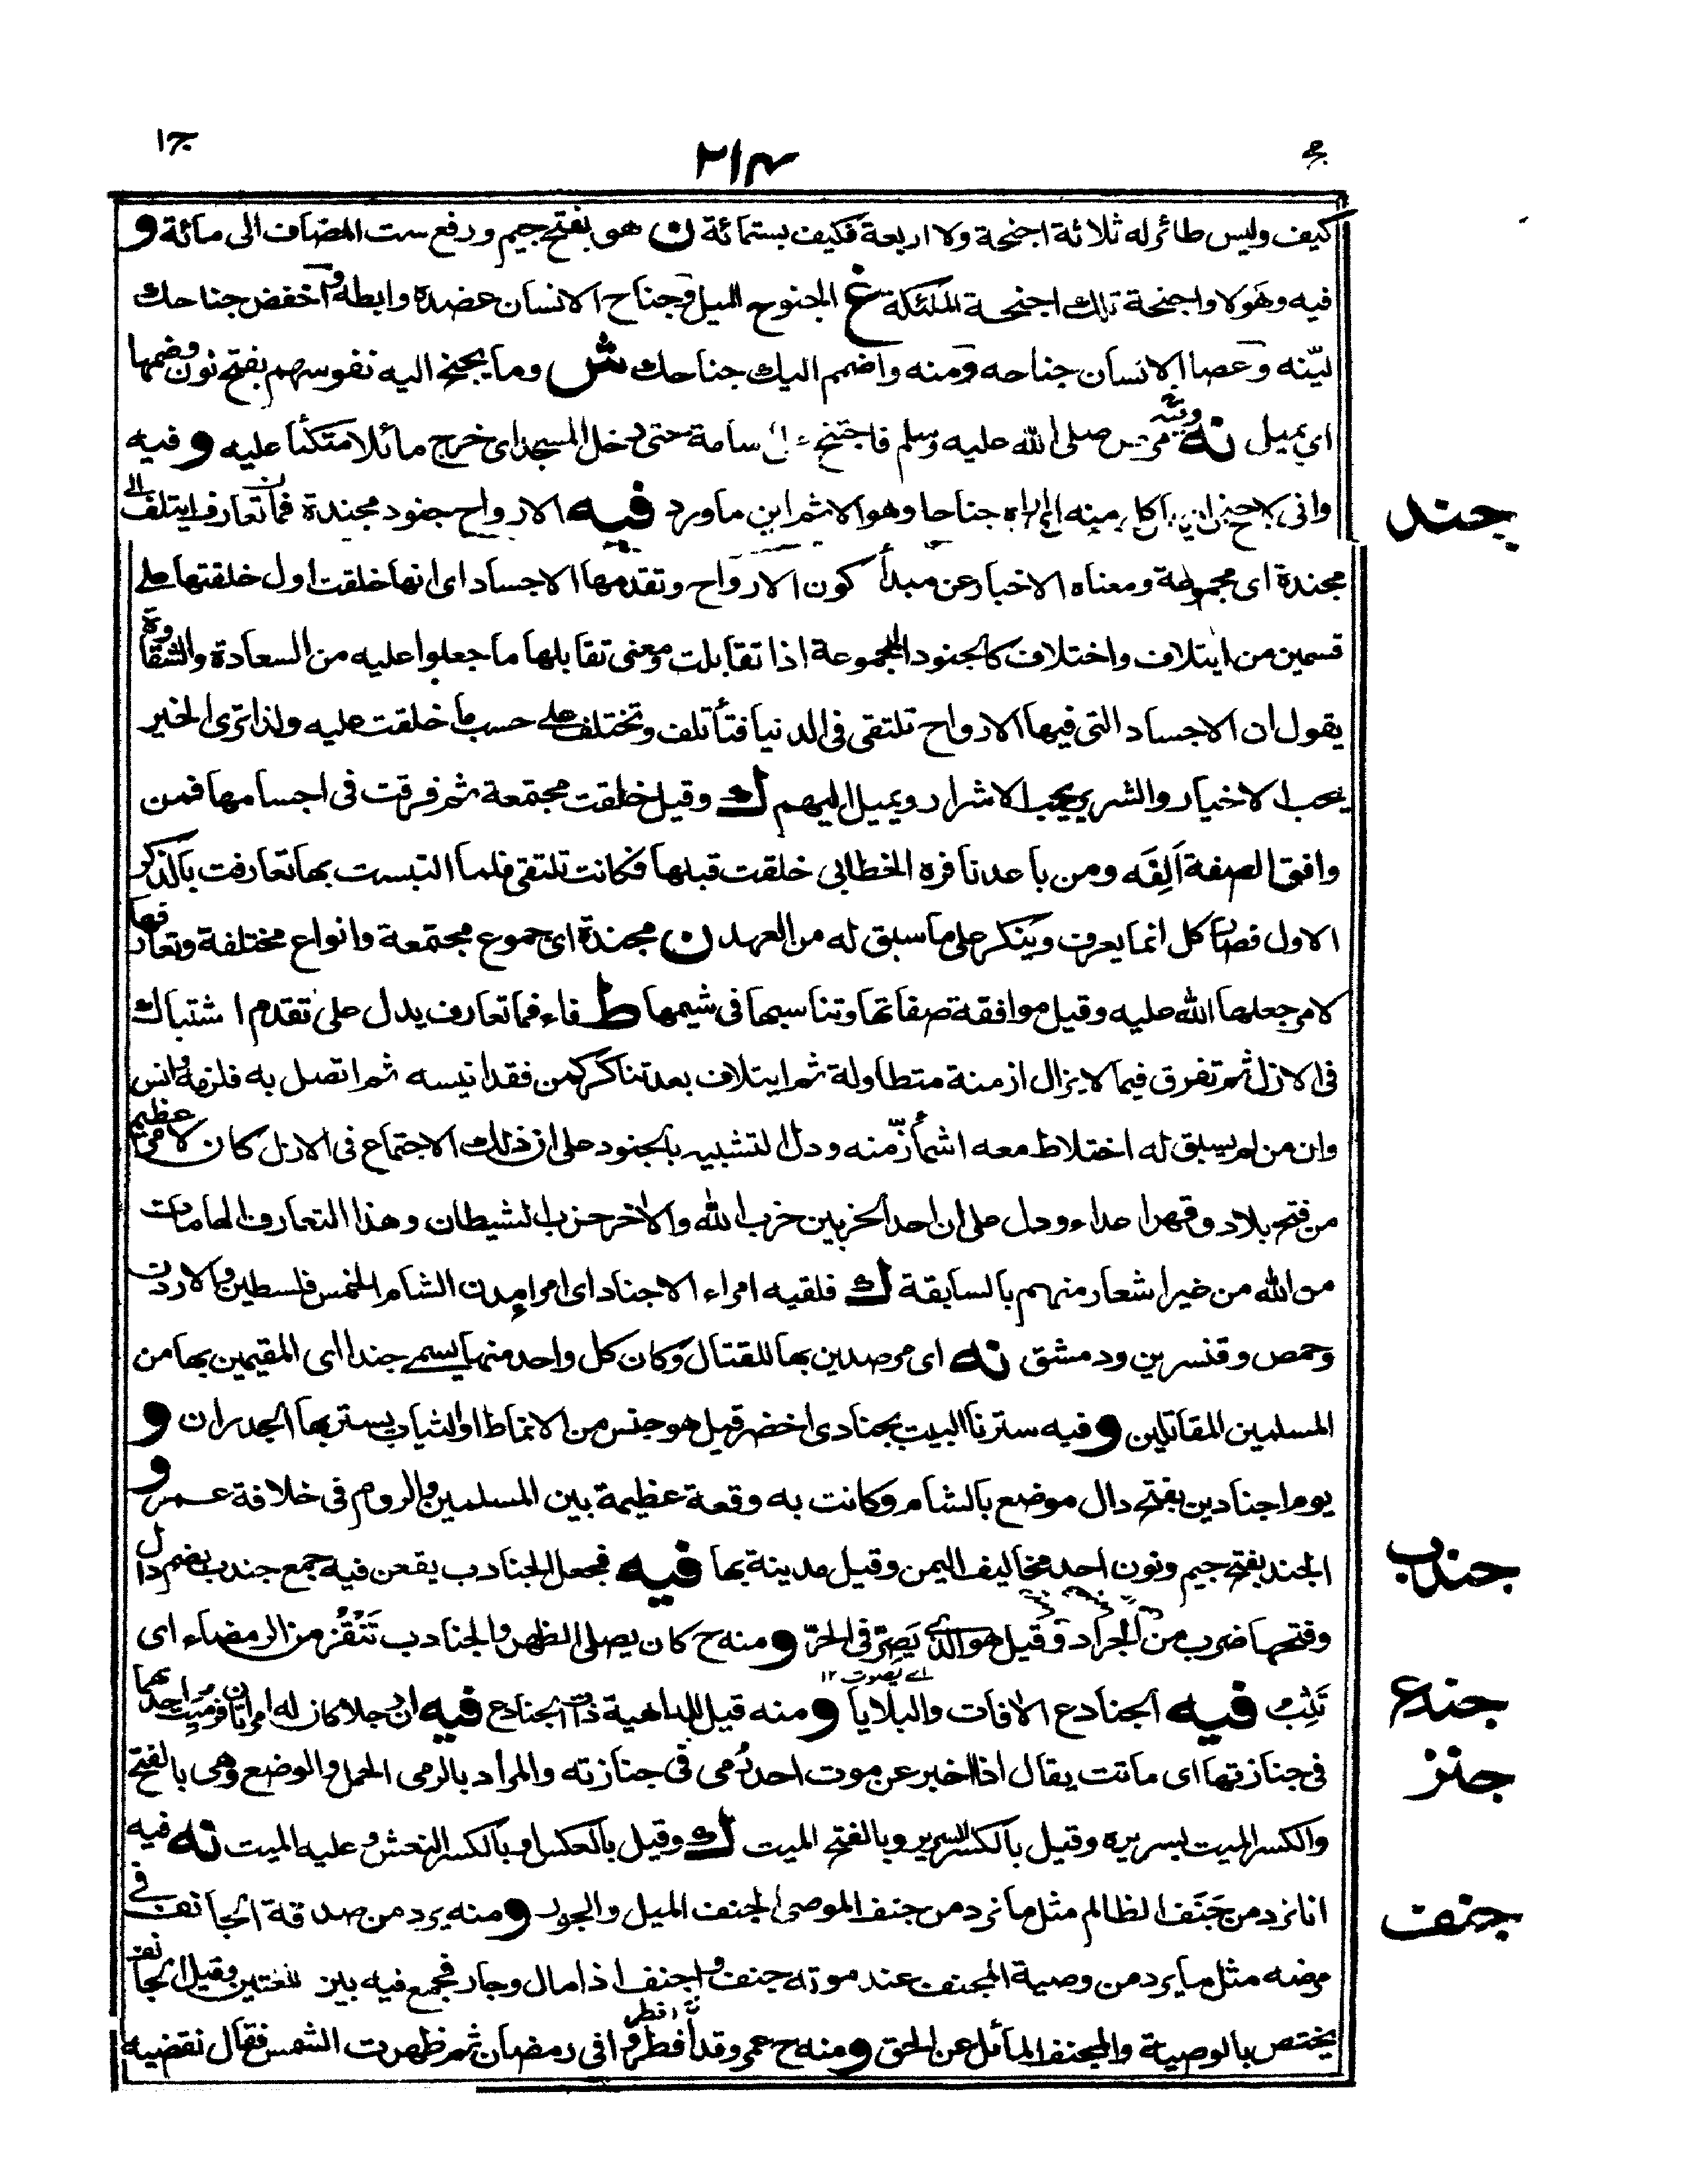 ج ٢١٤ ج١
كيف وليس طائر له ثلاثة اجنحة ولا اربعة فكيف بستمائة ن هو بفتح جيم ورفع ست المضاف الى مائة و
فيه وهولا واجنحة تلك اجنحة الملئكة غ الجنوح الميل وجناح الانسان عضده وابطه واخفض جناحك
ليّنه وعصا الانسان جناحه ومنه واضمم اليك جناحك ش وما يجنح اليه نفوسهم بفتح نون وضمها
اى يميل نه صلى الله عليه وسلم فاجتنح اسامة حتى دخل المسجد اى خرج مائلا متكئا عليه و فيه
وانى لاجنح ان اكل منه اى اراه جناحا وهو الاثم اين ما ورد فيه الارواح جنود مجندة فما تعارف ايتلف
جند
مجندة اى مجموعة ومعناه الاخبار عن مبدأ كون الارواح وتقدمها الاجساد اى انها خلقت اول خلقتها على
قسمين من ايتلاف واختلاف كالجنود المجموعة اذا تقابلت ومعنى تقابلها ما جعلوا عليه من السعادة والشقاوة
يقول ان الاجساد التى فيها الارواح تلتقى فى الدنيا فتأتلف وتختلف على حسب ما خلقت عليه ولذا ترى الخير
يحب الاخيار والشرير يحب الاشرار ويميل اليهم ك وقيل خلقت مجتمعة ثم فرقت فى اجسامها فمن
وافق الصفة اَلِفَه ومن باعد نافره الخطابى خلقت قبلها فكانت تلتقى فلما التبست بها تعارفت بالذكر
الاول فصار كل انما يعرف وينكر على ما سبق له من العهد ن مجندة اى جموع مجتمعة وانواع مختلفة وتعارفها
لامر جعلها الله عليه وقيل موافقة صفاتها وتناسبها فى شيمها ط فاء فما تعارف يدل على تقدم اشتباك
فى الازل ثم تفرق فيما لايزال ازمنة متطاولة ثم ايتلاف بعد تناكر كمن فقد انيسه ثم اتصل به فلزمه وانس
وان من لم يسبق له اختلاط معه اشمأزّ منه ودل التشبيه بالجنود على ان ذلك الاجتماع فى الازل كان لامر عظيم
من فتح بلاد وقهر اعداء ودل على ان احد الحزبين حزب الله والاخر حزب الشيطان وهذا التعارف الهامات
من الله من خير اشعار منهم بالسابقة ك فلقيه امراء الاجناد اى امراء مدن الشام الخمس فلسطين والاردن
وحمص وقنسرين ودمشق نه اى مرصدين بها للقتال وكان كل واحد منها يسمى جندا اى المقيمين بها من
المسلمين المقاتلين و فيه سترنا البيت بجنادى اخضر قيل هو جنس من الانماط او الثياب يستر بها الجدران و
يوم اجنادين بفتح دال موضع بالشام وكانت به وقعة عظيمة بين المسلمين والروم فى خلافة عمر و
الجند بفتح جيم ونون احد مخاليف اليمن وقيل مدينة بها فيه فجعل الجنادب يقعن فيه جمع جندب بضم دال
جندب
وفتحها ضرب من الجراد وقيل هو الذى يَصِرّ فى الحرّ و منه ح كان يصلى الظهر والجنادب تَنْقُز من الرمضاء اى
اے يصوت ١٢
تَثِب فيه الجنادع الافات والبلايا و منه قيل للداهية ذات الجنادع فيه ان رجلا كان له امرأتان فرميت احدٰهما
جندع
فى جنازتها اى ماتت يقال اذا اخبر عن موت احد رُمى فى جنازته والمراد بالرمى الحمل والوضع وهى بالفتح
جنز
والكسر الميت بسريره وقيل بالكسر السرير وبالفتح الميت ك وقيل بالعكس او بالكسر النعش وعليه الميت نه فيه
انا نرد من جَنَف الظالم مثل ما نرد من جنف الموصى الجنف الميل والجور و منه يرد من صدقة الجانف فى
جنف
مرضه مثل ما يرد من وصية المجنف عند موته جنف واجنف اذا مال وجار فجمع فيه بين اللغتين وقيل الجانف
يختص بالوصية والمجنف المائل عن الحق و منه ح عمر وقد أفطروا فى رمضان ثم ظهرت الشمس فقال نقضيه